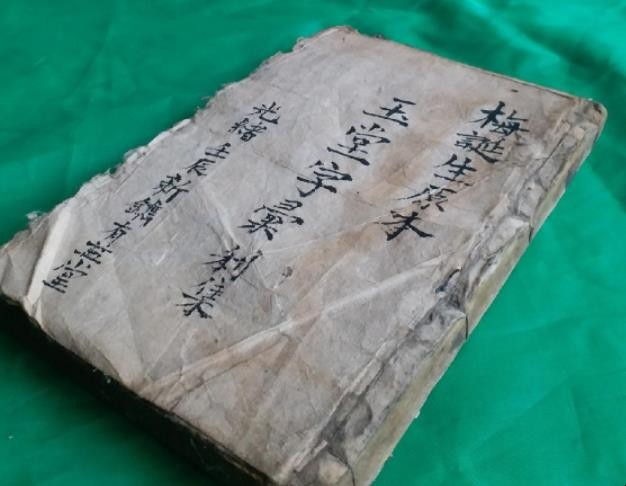 梅誕生原本
玉堂字彙 利集
光緒壬辰新鐫有益堂